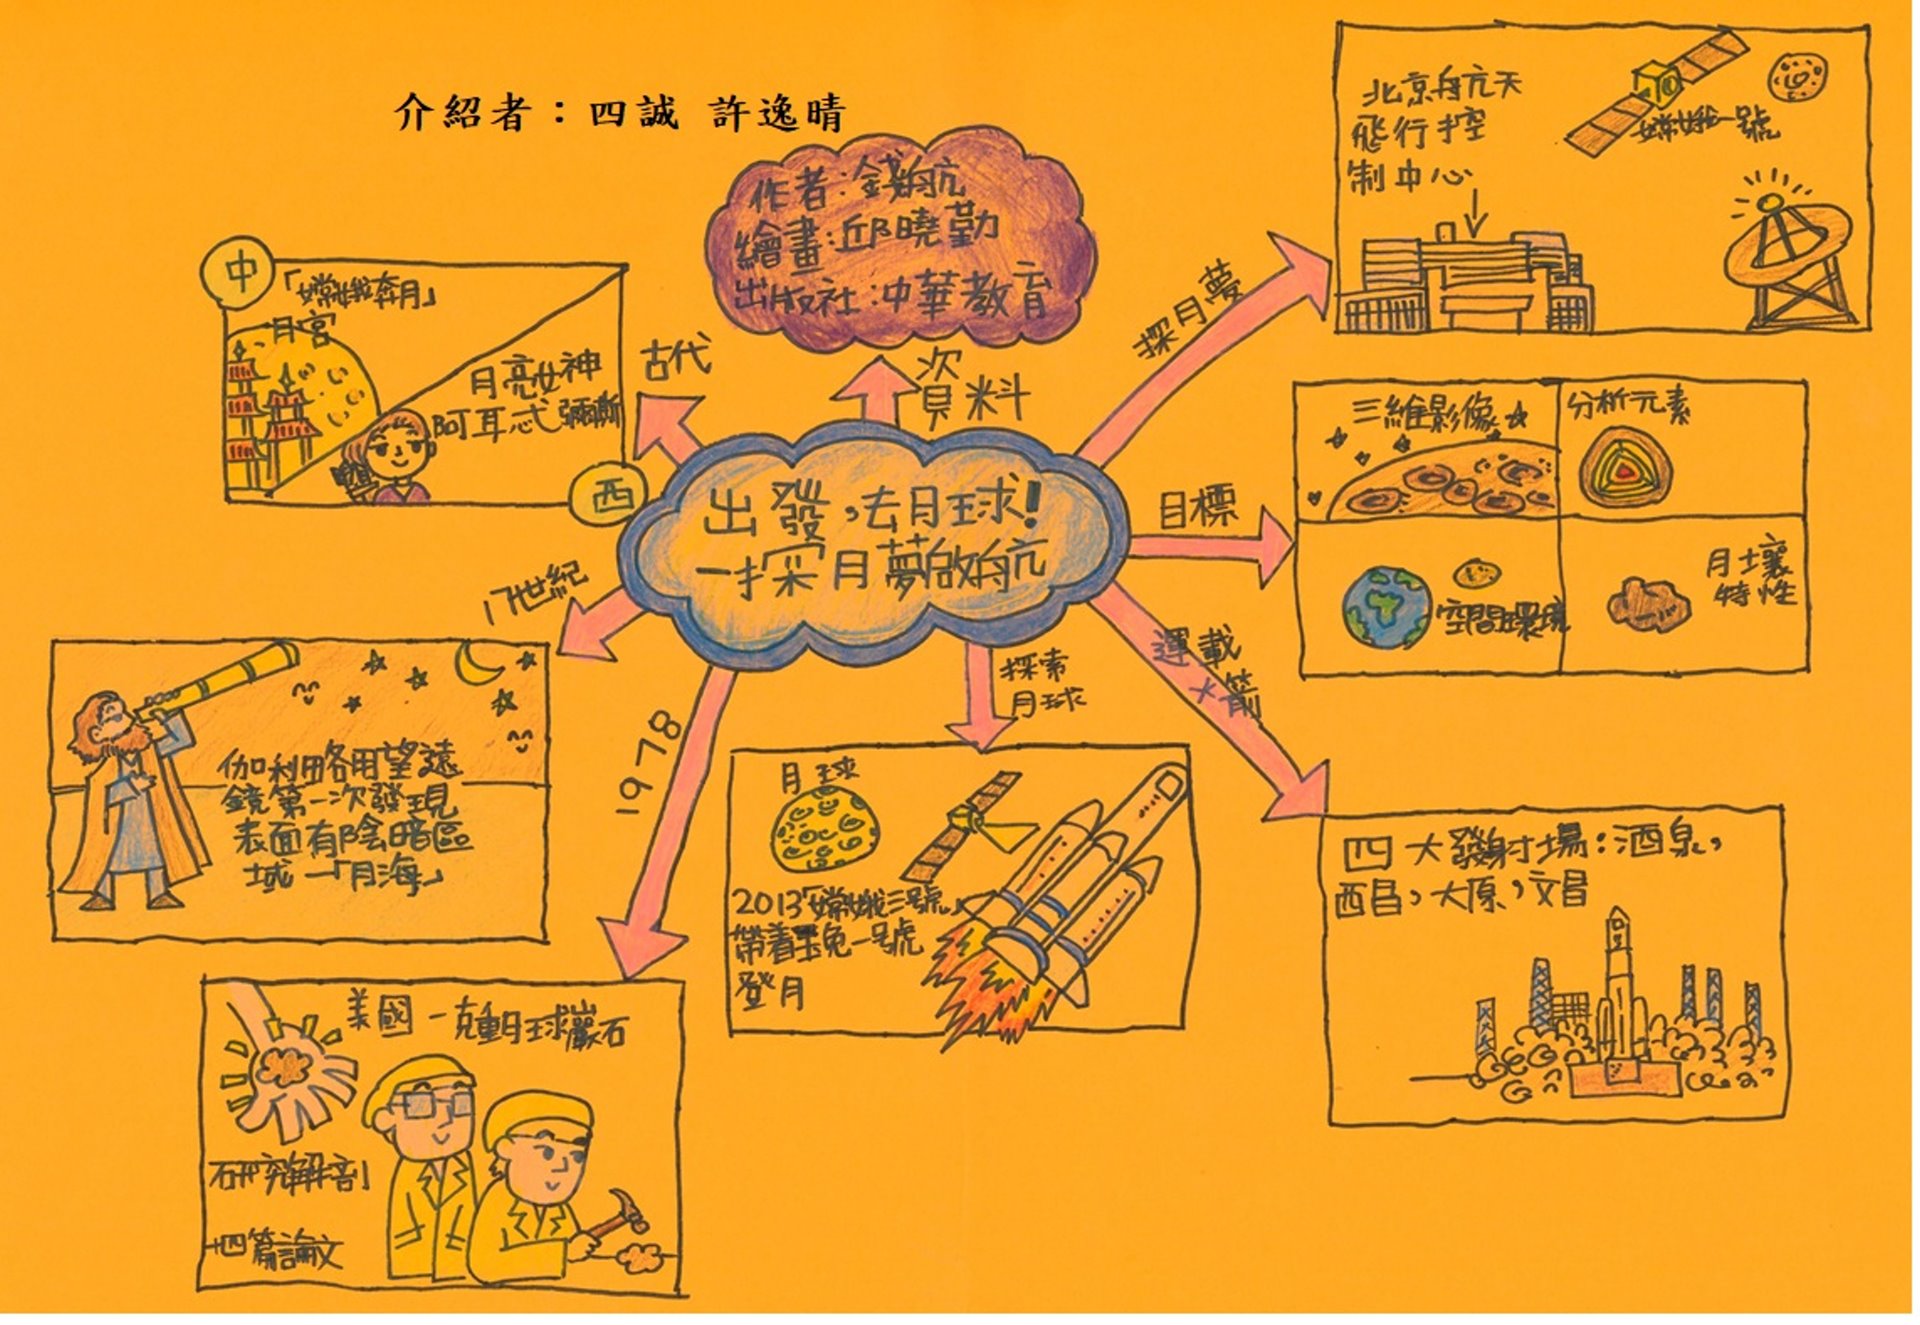 介紹者：四誠 許逸晴
作者：錢航
繪畫：邱曉勤
出版社：中華教育
資料
出發，去月球！
—探月夢啟航
古代
中
「嫦娥奔月」
月宮
月亮女神
阿耳忒彌斯
西
17世紀
伽利略用望遠
鏡第一次發現
表面有陰暗區
域—「月海」
1978
美國 一克重月球巖石
研究解剖
十四篇論文
探索
月球
月球
2013「嫦娥三號」
帶着玉兔一號
登月
運載
火箭
四大發射場：酒泉，
西昌，太原，文昌
目標
三維影像
分析元素
空間環境
月壤
特性
探月夢
北京航天
飛行控
制中心
嫦娥一號